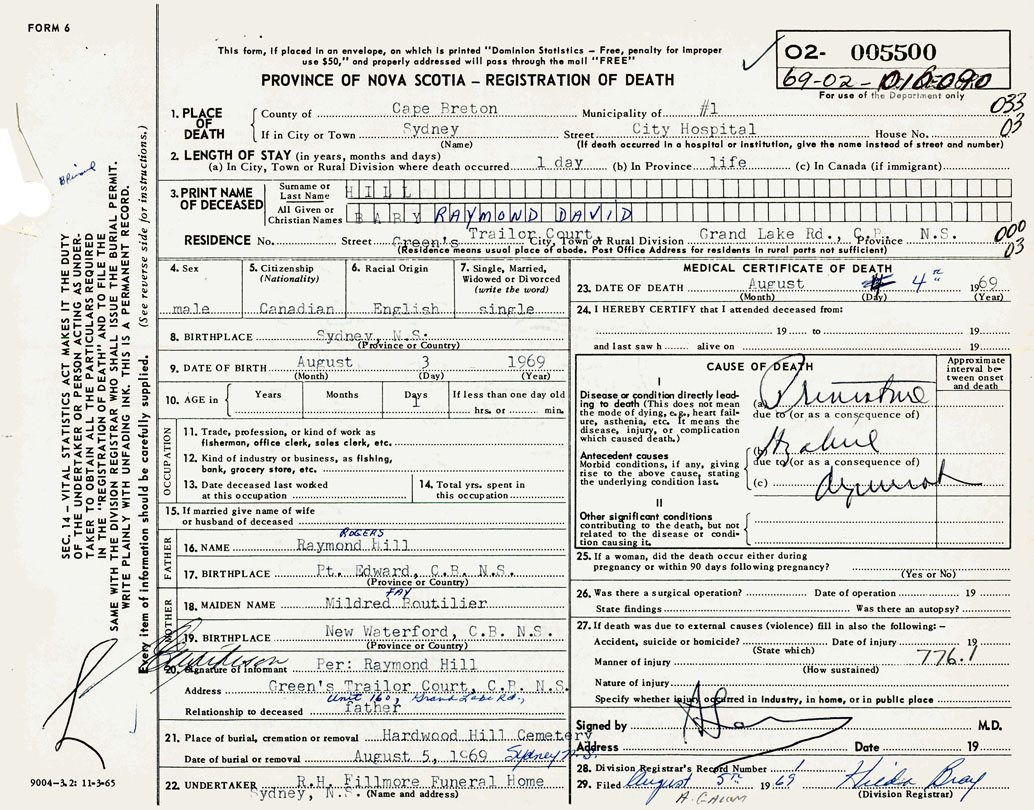 FORM 6
This form, if placed in an envelope, on which is printed "Dominion Statistics – Free, penalty for improper
use $50," and properly addressed will pass through the mail "FREE"
PROVINCE OF NOVA SCOTIA – REGISTRATION OF DEATH
02- 005500
69-02-
For use of the Department only
033
03
1. PLACE OF DEATH
County of Cape Breton Municipality of #1
If in City or Town Sydney Street City Hospital House No.
(Name) (If death occurred in a hospital or institution, give the name instead of street and number)
2. LENGTH OF STAY (in years, months and days)
(a) In City, Town or Rural Division where death occurred 1 day (b) In Province life (c) In Canada (if immigrant)
3. PRINT NAME OF DECEASED
Surname or Last Name HILL
All Given or Christian Names BABY RAYMOND DAVID
RESIDENCE No. Street Green's Trailor Court, City, Town or Rural Division Grand Lake Rd., C.B., Province N.S.
(Residence means usual place of abode. Post Office Address for residents in rural parts not sufficient)
000
03
4. Sex
male
5. Citizenship (Nationality)
Canadian
6. Racial Origin
English
7. Single, Married, Widowed or Divorced (write the word)
single
8. BIRTHPLACE Sydney, N.S.
(Province or Country)
9. DATE OF BIRTH August 3 1969
(Month) (Day) (Year)
10. AGE in Years Months Days 1 If less than one day old
hrs. or min.
OCCUPATION
11. Trade, profession, or kind of work as
fisherman, office clerk, sales clerk, etc.
12. Kind of industry or business, as fishing,
bank, grocery store, etc.
13. Date deceased last worked
at this occupation
14. Total yrs. spent in
this occupation
15. If married give name of wife
or husband of deceased
FATHER
ROGERS
16. NAME Raymond Hill
17. BIRTHPLACE Pt. Edward, C.B. N.S.
(Province or Country)
MOTHER
FAY
18. MAIDEN NAME Mildred Boutilier
19. BIRTHPLACE New Waterford, C.B. N.S.
(Province or Country)
20. Signature of informant Per: Raymond Hill
Address Green's Trailor Court, C.B. N.S.
Unit 160, Grand Lake Rd.,
Relationship to deceased father
21. Place of burial, cremation or removal Hardwood Hill Cemetery
Date of burial or removal August 5, 1969 Sydney N.S.
22. UNDERTAKER R.H. Fillmore Funeral Home
Sydney, N.S. (Name and address)
MEDICAL CERTIFICATE OF DEATH
23. DATE OF DEATH August 4th 1969
(Month) (Day) (Year)
24. I HEREBY CERTIFY that I attended deceased from:
19 to 19
and last saw h alive on 19
CAUSE OF DEATH
Approximate interval between onset and death
I
Disease or condition directly leading
to death (This does not mean
the mode of dying, e.g., heart failure,
asthenia, etc. It means the
disease, injury, or complication
which caused death.)
(a) Premature
due to (or as a consequence of)
Antecedent causes
Morbid conditions, if any, giving
rise to the above cause, stating
the underlying condition last.
(b)
due to (or as a consequence of)
(c)
II
Other significant conditions
contributing to the death, but not
related to the disease or condition
causing it.
25. If a woman, did the death occur either during
pregnancy or within 90 days following pregnancy?
(Yes or No)
26. Was there a surgical operation? Date of operation 19
State findings Was there an autopsy?
27. If death was due to external causes (violence) fill in also the following: –
Accident, suicide or homicide? Date of injury 19
(State which)
776.1
Manner of injury
(How sustained)
Nature of injury
Specify whether injury occurred in Industry, in home, or in public place
Signed by M.D.
Address Date 19
28. Division Registrar's Record Number 1
29. Filed August 5th 1969 Hilda Bray
(Division Registrar)
SEC. 14 – VITAL STATISTICS ACT MAKES IT THE DUTY
OF THE UNDERTAKER OR PERSON ACTING AS UNDERTAKER
TO OBTAIN ALL THE PARTICULARS REQUIRED
IN THE "REGISTRATION OF DEATH" AND TO FILE THE
SAME WITH THE DIVISION REGISTRAR WHO SHALL ISSUE THE BURIAL PERMIT.
WRITE PLAINLY WITH UNFADING INK. THIS IS A PERMANENT RECORD.
Every item of information should be carefully supplied. (See reverse side for instructions.)
9004-3.2: 11-3-65